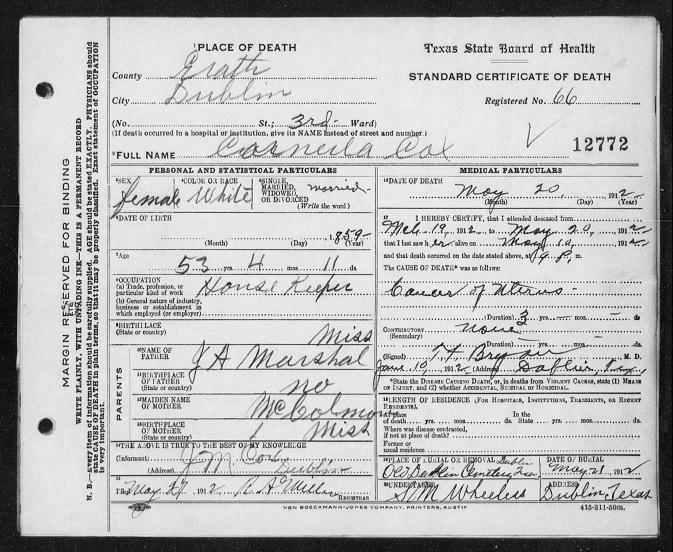 MARGIN RESERVED FOR BINDING
WRITE PLAINLY, WITH UNFADING INK—THIS IS A PERMANENT RECORD
N. B.—Every item of information should be carefully supplied. AGE should be stated EXACTLY. PHYSICIANS should
state CAUSE OF DEATH in plain terms, so that it may be properly classified. Exact statement of OCCUPATION
is very important.
1PLACE OF DEATH
County Erath
City Dublin
No. St.; 3rd Ward)
(If death occurred in a hospital or institution, give its NAME Instead of street and number.)
Texas State Board of Health
STANDARD CERTIFICATE OF DEATH
Registered No. 66
12772
2FULL NAME Corneila Cox
PERSONAL AND STATISTICAL PARTICULARS
3SEX female
4COLOR OR RACE White
5SINGLE, MARRIED, WIDOWED, OR DIVORCED married
(Write the word)
6DATE OF BIRTH
1859
(Month) (Day) (Year)
7Age
53 yrs 4 mos 11 ds
8OCCUPATION
(a) Trade, profession, or
particular kind of work House Keeper
(b) General nature of industry,
business or establishment in
which employed (or employer)
9BIRTHPLACE
(State or country) Miss
PARENTS
10NAME OF
FATHER J A Marshal
11BIRTHPLACE
OF FATHER
(State or country) no
12MAIDEN NAME
OF MOTHER
13BIRTHPLACE
OF MOTHER
(State or country) Miss
14THE ABOVE IS TRUE TO THE BEST OF MY KNOWLEDGE
(Informant) J M Cox
(Address) Dublin
15
Filed May 27 1912
REGISTRAR
MEDICAL PARTICULARS
16DATE OF DEATH
May 20, 1912
(Month) (Day) (Year)
17 I HEREBY CERTIFY, that I attended deceased from
19, 1912 to May 20, 1912
that I last saw her alive on May 1912
and that death occurred on the date stated above, at P. m.
The CAUSE OF DEATH* was as follows:
Cancer of Uterus
(Duration) 3 yrs. mos. ds
CONTRIBUTORY None
(Secondary)
(Duration) yrs. mos. ds
(Signed) M. D.
June 10, 1912 (Address) Dublin, Tex
*State the DISEASE CAUSING DEATH, or, in deaths from VIOLENT CAUSES, state (1) MEANS
OF INJURY, and (2) whether ACCIDENTAL, SUICIDAL OR HOMICIDAL.
18LENGTH OF RESIDENCE (FOR HOSPITALS, INSTITUTIONS, TRANSIENTS, OR RECENT
RESIDENTS).
At place In the
of death yrs. mos. ds. State yrs. mos. ds
Where was disease contracted,
if not at place of death?
Former or
usual residence
19PLACE OF BURIAL OR REMOVAL Dublin
Old Dublin Cemetery Tex
DATE OF BURIAL
May 21, 1912
20UNDERTAKER
S M Wheeless
ADDRESS
Dublin, Texas
VON BOECKMANN-JONES COMPANY, PRINTERS, AUSTIN
415-311-50m.